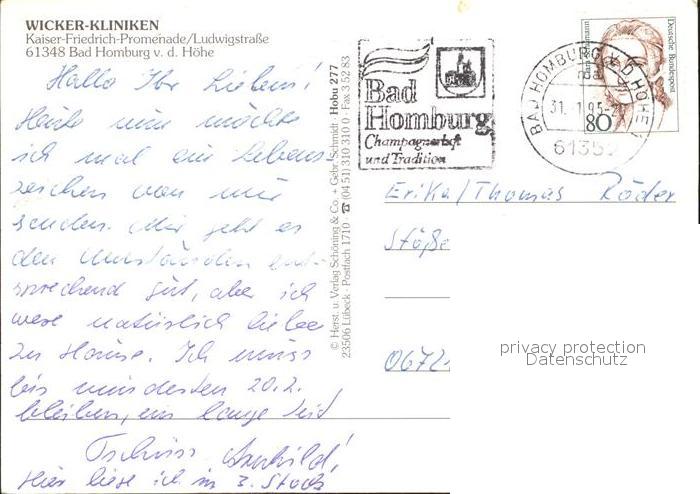 WICKER-KLINIKEN
Kaiser-Friedrich-Promenade/Ludwigstraße
61348 Bad Homburg v. d. Höhe
Hallo Ihr Lieben!
Heute nun möchte
ich mal ein Lebens-
zeichen von mir
senden. Mir geht es
den Umständen ent-
sprechend gut, aber ich
wäre natürlich lieber
zu Hause. Ich muss
bis mindesten 20.2.
bleiben, ein lange Zeit
Tschüss
Hier liege ich im 3. Stock
© Herst. u. Verlag Schöning & Co. + Gebr. Schmidt · Hobu 277
23506 Lübeck · Postfach 1710 · ☎ (04 51) 310 310 0 · Fax 3 52 83
Bad
Homburg
Champagnerluft
und Tradition
BAD HOMBURG V D HÖHE 1
31.-1.95
61352
Deutsche Bundespost
80
Erika/Thomas Röder
Stöße
0672
privacy protection
Datenschutz